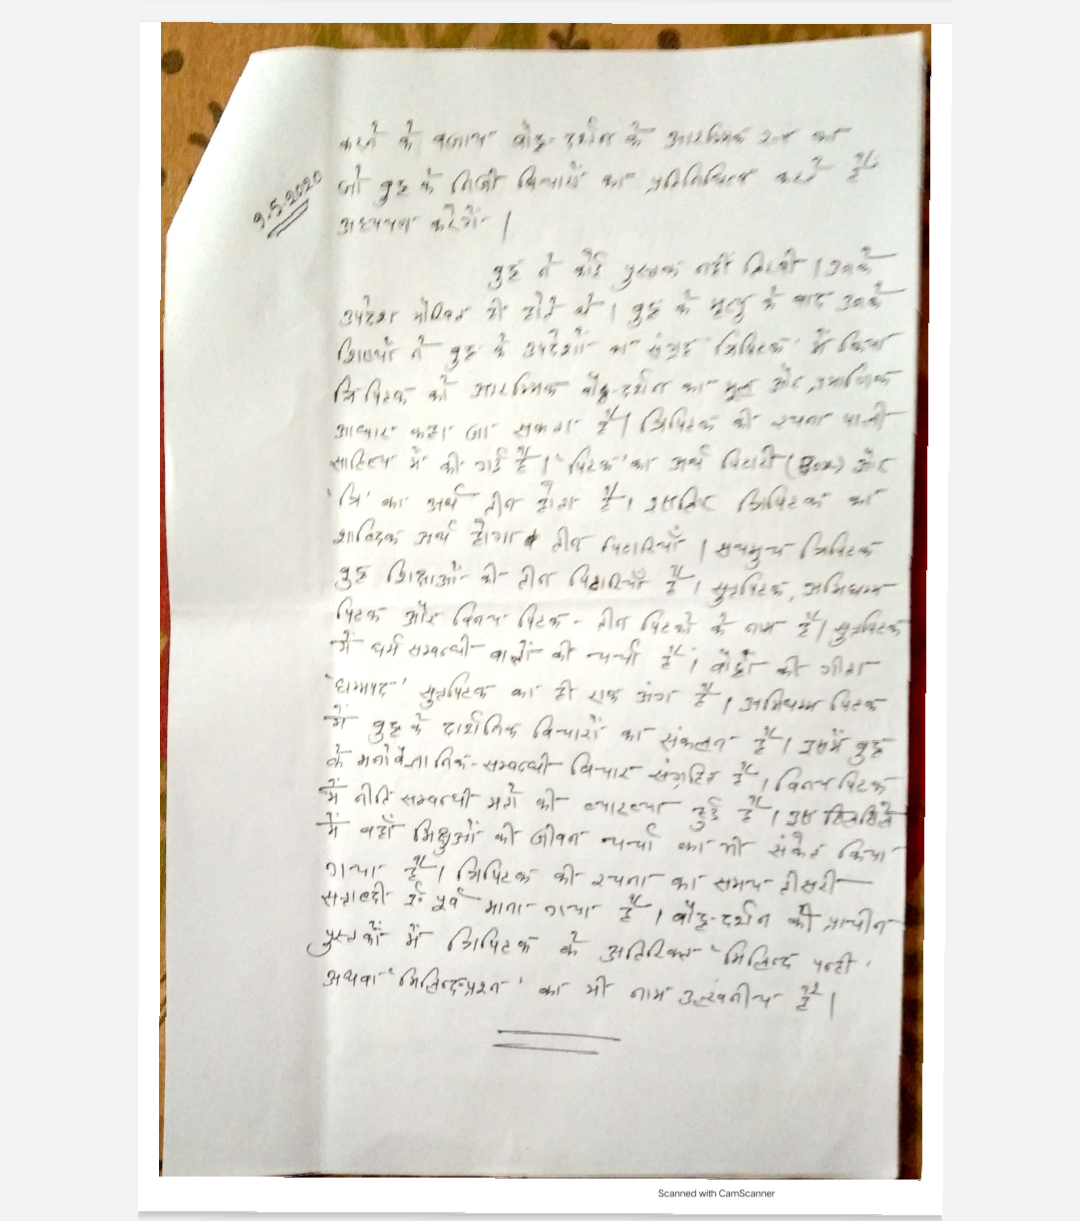 करने के बजाय बौद्ध-दर्शन के आरम्भिक रूप का
जो बुद्ध के निजी विचारों का प्रतिनिधित्व करते हैं
9.5.2020
अध्ययन करेंगे।
बुद्ध ने कोई पुस्तक नहीं लिखी। उनके
उपदेश मौखिक ही होते थे। बुद्ध के मृत्यु के बाद उनके
शिष्यों ने बुद्ध के उपदेशों का संग्रह 'त्रिपिटक' में किया
त्रिपिटक को आरम्भिक बौद्ध-दर्शन का मूल और प्रमाणिक
आधार कहा जा सकता है। त्रिपिटक की रचना पाली
साहित्य में की गई है। 'पिटक' का अर्थ पिटारी (Box) और
'त्रि' का अर्थ तीन होता है। इसलिए त्रिपिटक का
शाब्दिक अर्थ होगा तीन पिटारियाँ। सचमुच त्रिपिटक
बुद्ध शिक्षाओं की तीन पिटारियाँ हैं। सुत्तपिटक, अभिधम्म
पिटक और विनय पिटक - तीन पिटकों के नाम हैं। सुत्तपिटक
में धर्म सम्बन्धी बातों की चर्चा है। बौद्धों की गीता
'धम्मपद' सुत्तपिटक का ही एक अंग है। अभिधम्म पिटक
में बुद्ध के दार्शनिक विचारों का संकलन है। इसमें बुद्ध
के मनोवैज्ञानिक-सम्बन्धी विचार संग्रहित हैं। विनय पिटक
में नीति सम्बन्धी मतों की व्याख्या हुई है। इस सिलसिले
में वहाँ भिक्षुओं की जीवन चर्चा का भी संकेत किया
गया है। त्रिपिटक की रचना का समय तीसरी
सताब्दी ई० पूर्व माना गया है। बौद्ध-दर्शन की प्राचीन
पुस्तकों में त्रिपिटक के अतिरिक्त 'मिलिन्द पन्हो'
अथवा 'मिलिन्द-प्रश्न' का भी नाम उल्लेखनीय है।
Scanned with CamScanner